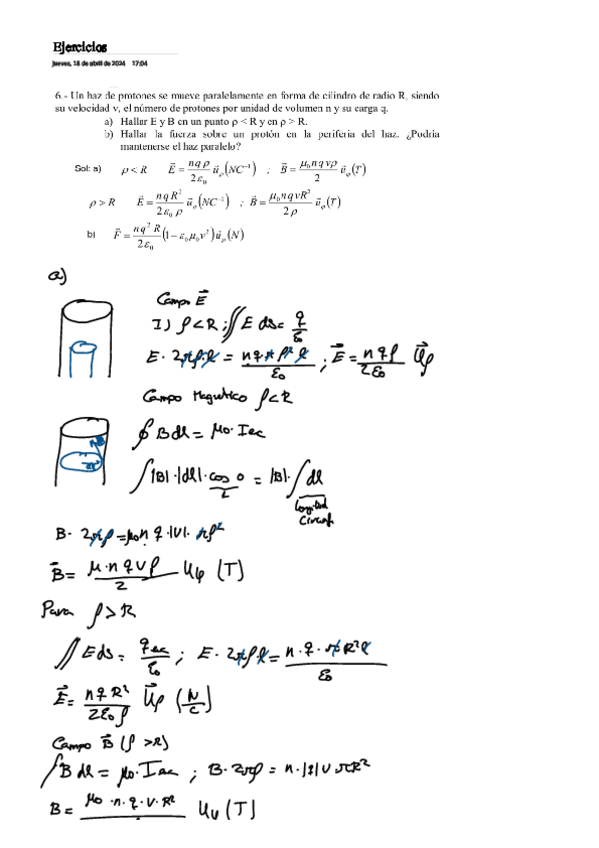 Ejercicios
jueves, 18 de abril de 2024 17:04
6.- Un haz de protones se mueve paralelamente en forma de cilindro de radio R, siendo
su velocidad v, el número de protones por unidad de volumen n y su carga q.
a) Hallar E y B en un punto ρ < R y en ρ > R.
b) Hallar la fuerza sobre un protón en la periferia del haz. ¿Podría
mantenerse el haz paralelo?
Sol: a) ρ < R E⃗ = nqρ/2ε₀ u⃗ρ (NC⁻¹) ; B⃗ = μ₀nqvρ/2 u⃗φ (T)
ρ > R E⃗ = nqR²/2ε₀ρ u⃗ρ (NC⁻¹) ; B⃗ = μ₀nqvR²/2ρ u⃗φ (T)
b) F⃗ = nq²R/2ε₀ (1 − ε₀μ₀v²) u⃗ρ (N)
a)
Campo E⃗
I) ρ<R ; ∬ E ds = q/ε₀
E · 2πρ·l = n q·π ρ² l/ε₀ ; E⃗ = n q ρ/2ε₀ U⃗ρ
Campo Magnetico ρ<R
∮ B dl = μ₀ · Ienc
∫ |B|·|dl|·cos 0 = |B|·∫ dl
1
Longitud
Circunf
B · 2πρ = μ₀ n q·|v|· πρ²
B⃗ = μ·n q v ρ/2 Uφ (T)
Para ρ>R
∬ E ds = qenc/ε₀ ; E · 2πρ l = n·q·πR² l/ε₀
E⃗ = n q R²/2ε₀ρ U⃗ρ (N/C)
Campo B⃗ (ρ >R)
∫ B dl = μ₀·Ienc ; B·2πρ = n·|q| v πR²
B = μ₀ ·n·q·v·R² Uφ (T)